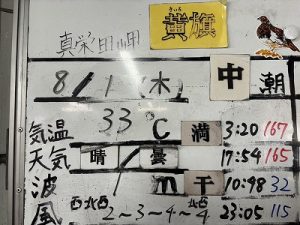 きいろ
黄旗
真栄田岬
8/1(木)
中潮
気温 33℃ 満 3:20 167
天気 晴/曇 17:54 165
波 m 干 10:98 32
風 西北西 2~3~4~北西4 23:05 115